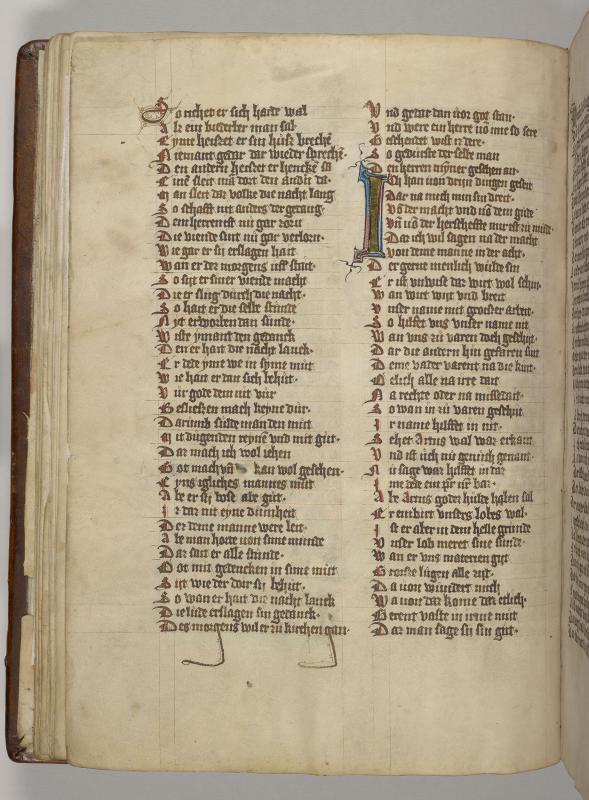 So richet er sich harte wal
Ab ein biderber man sal
Eyme heiset er sin huß brechē
Niemant gedar dar wieder sprechē
Den andern heiset er hencke sa
Eine sleit mā dort den andir da
Man sleit dar volke die nacht lang
So schafft nit anders der getang
Dem herren ist nü gar zorn
Die viende sint nü gar verlorn
Wie gar er sij erslagen hait
Wan er des morgens uff stait
So sijt er siner viende macht
Die er slug durch die nacht
So hait er die selbe stunde
Nyt erworben dan sunde
Wiste ymant den gedanck
Den er hait die nacht lanck
Er dede yme we in syme mut
Wie hait er dan sich behüt
Vür gode dem nit vür
Besließen mach keyne dür
Darumb sulde man den mut
Mit dugenden reynē vnd mit güt
Dar mach ich wol iehen
Got mach vn̄ kan wol gesehen
Eyns igliches mannes mut
Abe er sij bose abe güt
Ir dar nit eyne dumheit
Der deme manne were leit
Abe man horte von sime munde
Dar sait er alle stunde
Got mit gedencken in sime mut
Sijt wie der doir sij behüt
So wan er hait die nacht lanck
Die lude erslagen sin gedanck
Des morgens wil er zü kirchen gan
Vnd gedar dan vor got stan
Vnd were ein herre vō ime so sere
Geschendet wist er dere
So gedürste der selbe man
Den herren nÿmer gesehen an
Ich han von drijn dingen geseit
Dar na mich min sin dreit
Vō der macht vnd vō dem gude
Vn̄ vō der herscheffte mir ist zü mude
Dar ich wil sagen na der macht
Von deme manne in der acht
Der gerne menlich wülde sin
Er ist vnwise dar wirt wol schin
Wan wirt wijt vnd breit
Vnser name mit groisser arbeit
So hilfft vns vnser name nit
Wan vns zü varen doch geschijt
Dar die andern hin gefaren sint
Deme vader varent na die kint
Oelich alle na irre dait
Na rechte oder na missedait
So wan in zü varen geschijt
Ir name hilffet in nit
Sehet Artus wal war erkant
Vnd ist üch nü genüch genant
Nü sage war hilffet in dar
Ime dede ein pr̄ nr̄ bar
Abe Artus godes hulde haben sal
Er enbirt vnsers lobes wal
Ist er aber in dem helle grunde
Vnser lob meret sine sunde
Wan er vns materien gijt
Groiße lügen alle zijt
Da von wundert mich
Wa von dar kome dar etlich
Gerent vaste in irme mut
Dar man sage sij sin güt